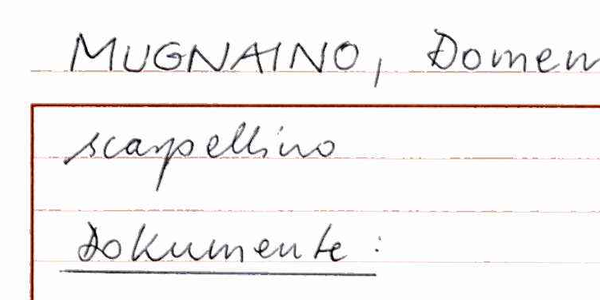 MUGNAINO, Domen
scarpellino
Dokumente: